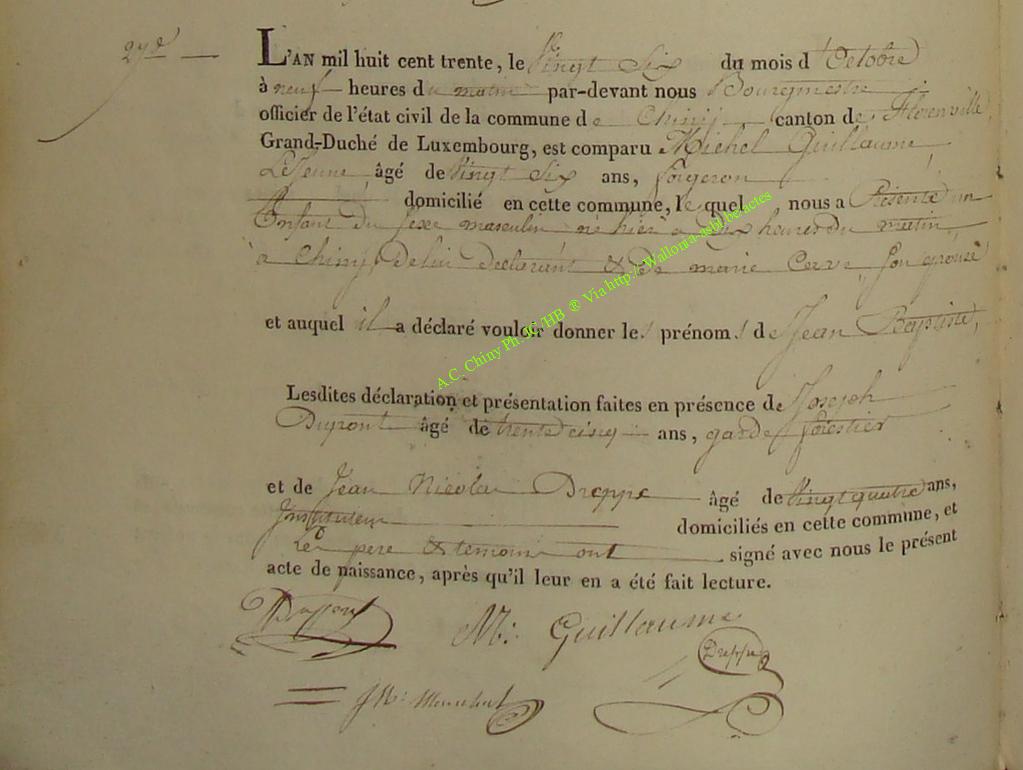 29e
L'AN mil huit cent trente, le Vingt Six du mois d'Octobre
à neuf heures du matin par-devant nous Bourgmestre
officier de l'état civil de la commune de Chiny canton de Florenville
Grand-Duché de Luxembourg, est comparu Michel Guillaume
Le Jeune âgé de Vingt Six ans, forgeron
domicilié en cette commune, le quel nous a Présenté un
Enfant du sexe masculin né hier à Dix heures du matin
à Chiny, de lui déclarant & de marie son épouse
et auquel il a déclaré vouloir donner les prénoms de Jean Baptiste,
Lesdites déclaration et présentation faites en présence de Joseph
Dupont âgé de trente cinq ans, garde forestier
et de Jean Nicolas Dreppe âgé de Vingt quatre ans,
Instituteur domiciliés en cette commune, et
Les père & temoins ont signé avec nous le présent
acte de naissance, après qu'il leur en a été fait lecture.
Dupont M: Guillaume
Dreppe
A.C. Chiny Ph. JC/HB ® Via http://Wallonia-asbl.be/actes